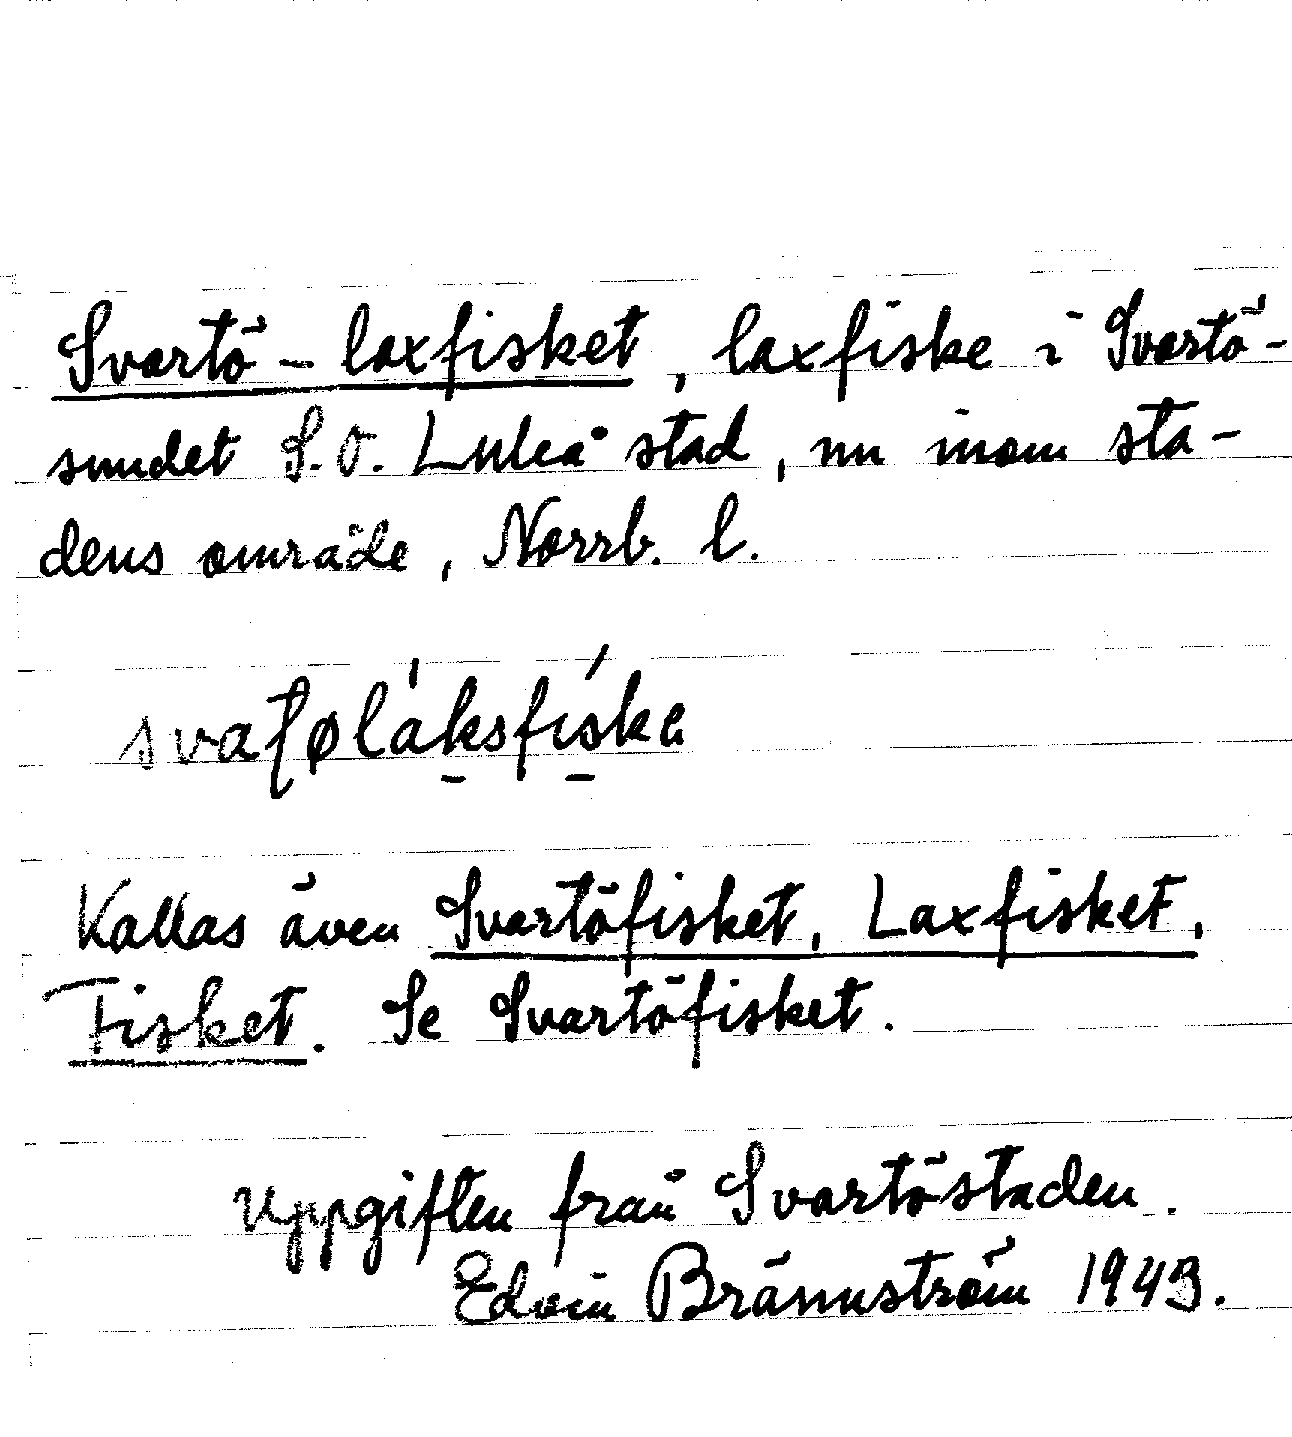 Svartö-laxfisket, laxfiske i Svartö-
sundet S.O. Luleå stad, nu inom sta-
dens område, Norrb. l.
Kallas även Svartöfisket, Laxfisket,
Fisket. Se Svartöfisket.
Uppgiften från Svartöstaden.
Edvin Brännström 1943.